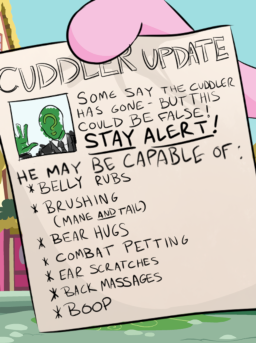 CUDDLER UPDATE
SOME SAY THE CUDDLER
HAS GONE - BUT THIS
COULD BE FALSE!
STAY ALERT!
HE MAY BE CAPABLE OF:
* BELLY RUBS
* BRUSHING
(MANE AND TAIL)
* BEAR HUGS
* COMBAT PETTING
* EAR SCRATCHES
* BACK MASSAGES
* BOOP
?